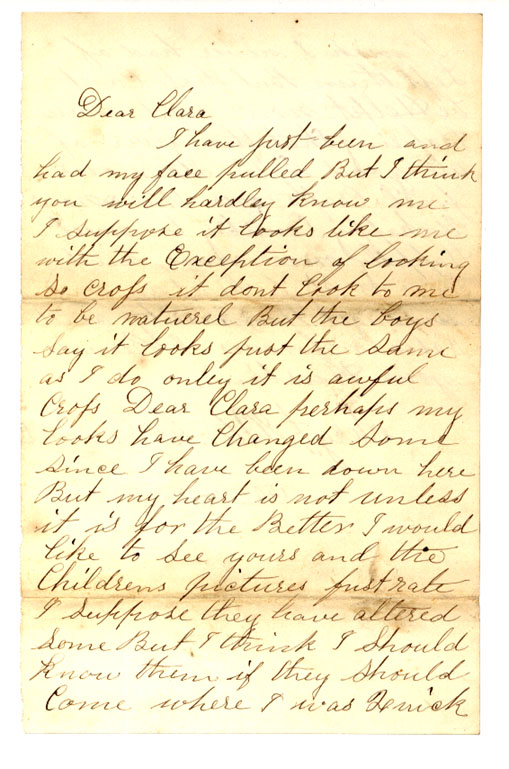 Dear Clara
I have just been and
had my face pulled But I think
you will hardley know me
I suppose it looks like me
with the Exception of looking
so cross it dont look to me
to be natuerel But the boys
say it looks just the same
as I do onley it is awful
Cross Dear Clara perhaps my
looks have Changed Some
since I have been down here
But my heart is not unless
it is for the Better I would
like to see yours and the
Childrens pictures furst rate
I suppose they have altered
some But I think I should
know them if they should
Come where I was